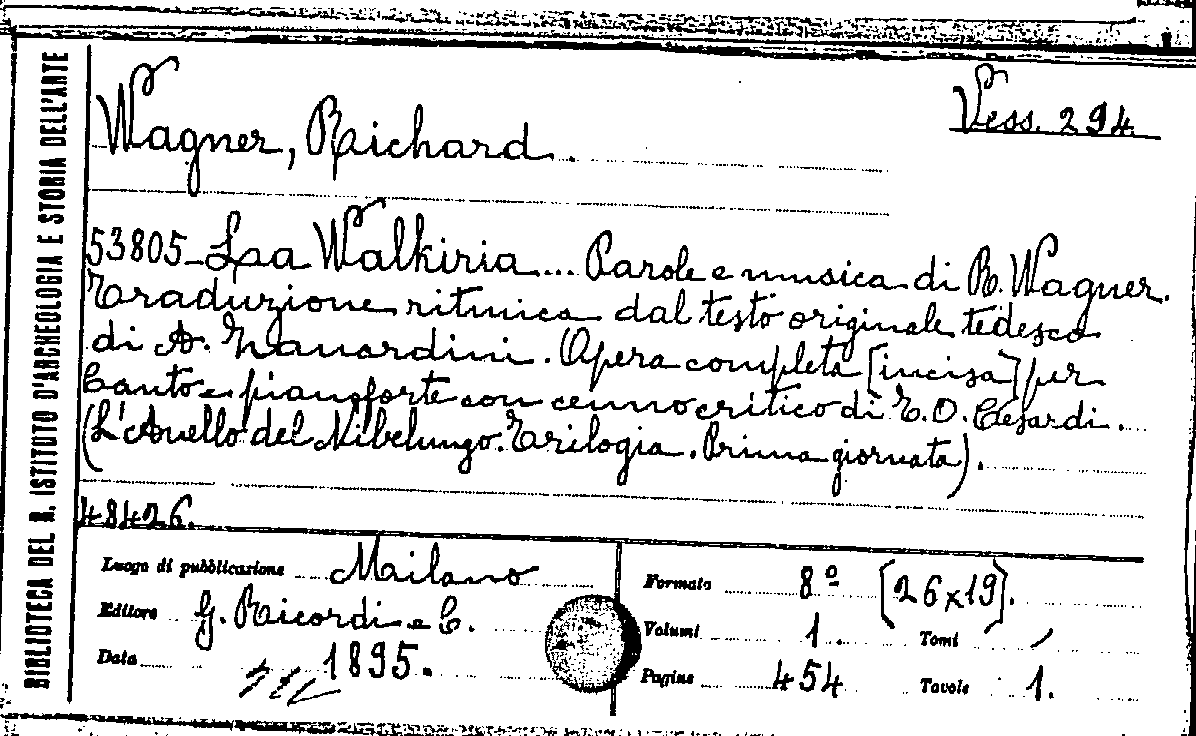 BIBLIOTECA DEL R. ISTITUTO D'ARCHEOLOGIA E STORIA DELL'ARTE
Vess. 294
Wagner, Richard.
53805 - La Walkiria.... Parole e musica di R. Wagner.
Traduzione ritmica dal testo originale tedesco
di A. Zanardini. Opera completa [incisa] per
Canto e pianoforte con cenno critico di E. O. Cesardi.
(L'Anello del Nibelungo. Trilogia. Prima giornata).
48426.
Luogo di pubblicazione Milano
Editore G. Ricordi e C.
Data 1895.
Formato 8º [26x19].
Volumi 1. Tomi /
Pagine 454 Tavole 1.